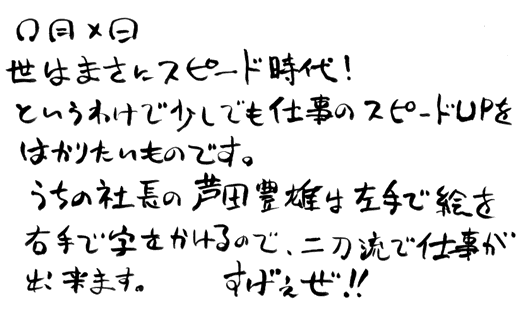 〇月×日
世はまさにスピード時代!
というわけで少しでも仕事のスピードUPを
はかりたいものです。
うちの社長の芦田豊雄は左手で絵を
右手で字をかけるので、二刀流で仕事が
出来ます。 すげぇぜ!!